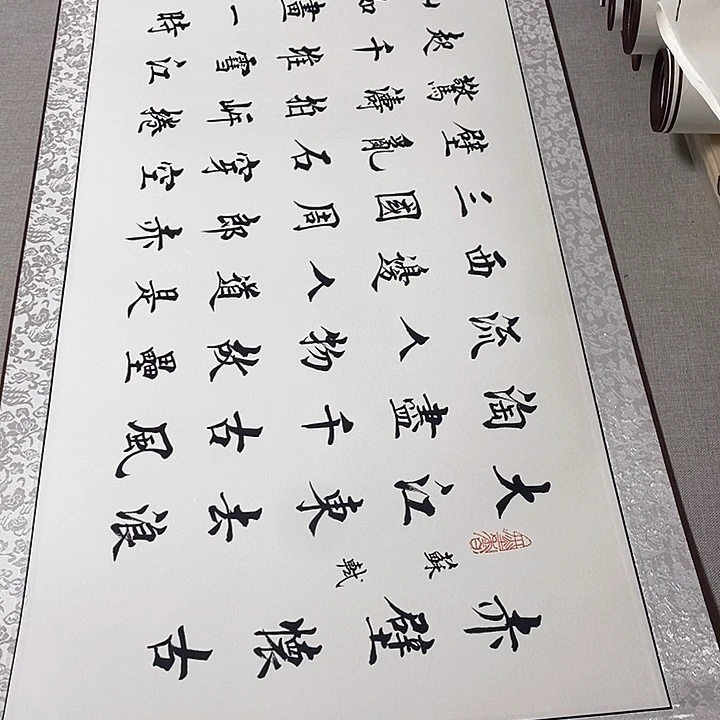 赤壁懷古
蘇軾
大江東去浪
淘盡千古風
流人物故壘
西邊人道是
三國周郎赤
壁亂石穿空
驚濤拍岸捲
起千堆雪江
山如畫一時